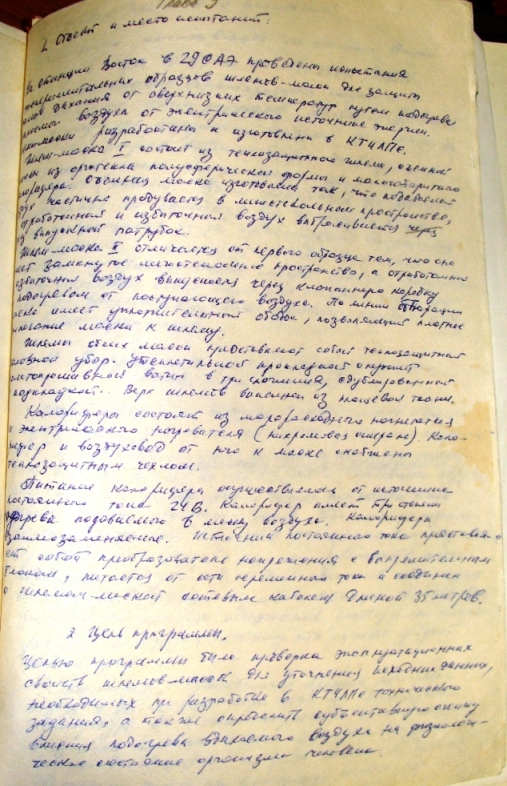 Глава 3
1. Объект и место испытаний:
На станции Восток в 29 САЭ проведены испытания
экспериментальных образцов шлемов-масок для защиты
дыхания от сверхнизких температур путем подогрева
воздуха от электрического источника энергии.
разработаны и изготовлены в КТИЛПе.
Шлем-маска I состоит из теплозащитного шлема, съемной
из оргстекла полусферической формы и малогабаритного
Съемная маска изготовлена так, что подаваемый
частично продувается в межстекольном пространстве,
отработанный и избыточный воздух выбрасывается через
выпускной патрубок.
Шлем-маска II отличается от первого образца тем, что она
замкнутое межстекольное пространство, а отработанный
воздух выпускается через клапанную коробку
подогревом от поступающего воздуха. По линии
имеет уплотнительный ободок, позволяющий плотное
маски к шлему.
Шлемы обеих масок представляют собой теплозащитный
головной убор. Утеплительной прокладкой служит
ватин в три сложения, дублированный
подкладкой. Верх шлемов выполнен из плащевой ткани.
Калориферы состоят из
и электрического нагревателя (нихромовая спираль) Кало-
рифер и воздуховод от него к маске снабжены
теплозащитным чехлом.
Питание калорифера осуществляется от источника
постоянного тока 24 В. Калорифер имеет три степени
подогрева подаваемого в маску воздуха. Калориферы
взаимозаменяемые. Источник постоянного тока представля-
ет собой преобразователь напряжения с выпрямительным
блоком, питается от сети переменного тока и соединен
с шлемом-маской сетевым кабелем длиной 35 метров.
2 Цель программы.
Целью программы было проверка эксплуатационных
свойств шлемов-масок для уточнения исходных данных,
необходимых при разработке в КТИЛПе технического
задания, а также определить субъективную оценку
влияния подогрева вдыхаемого воздуха на физиологи-
ческое состояние организма человека.